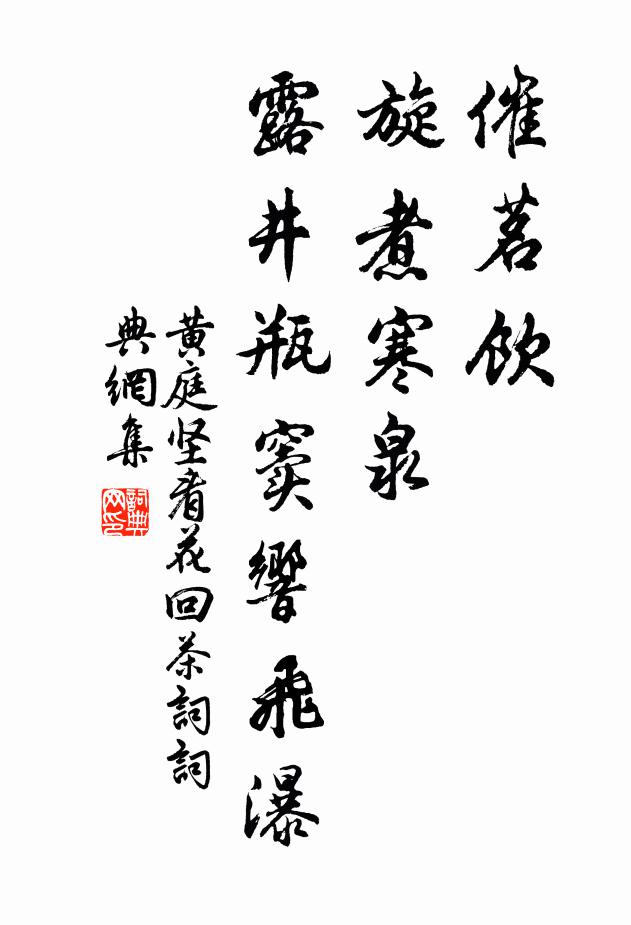 催茗飲
旋煮寒泉
露井瓶竇響飛瀑
黄庭坚看花回茶詞詞
典網集
詞典网印